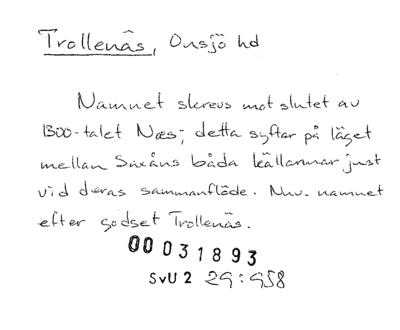 Trollenäs, Onsjö hd
Namnet skrevs mot slutet av
1300-talet Næs; detta syftar på läget
mellan Saxåns båda källarmar just
vid deras sammanflöde. Nuv. namnet
efter godset Trollenäs.
00031893
SvU2 29:958